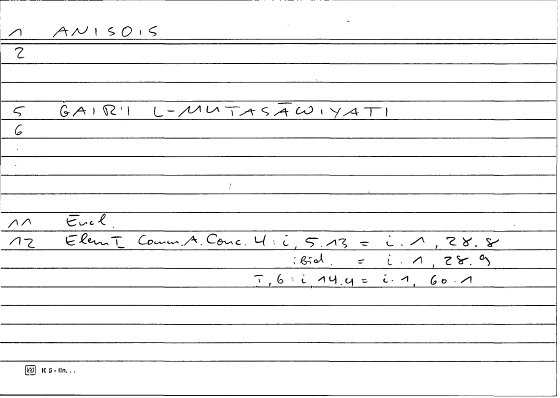 1 ANISOIS
2
5 ĠAIRI L-MUTASĀWIYATI
6
.
.
11 Eucl.
12 Elem I Comm.A.Conc. 4: i, 5.13 = i.1, 28.8
ibid. = i.1, 28.9
I, 6: i 14.4 = i.1, 60.1